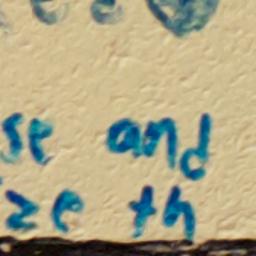 se and
ze th